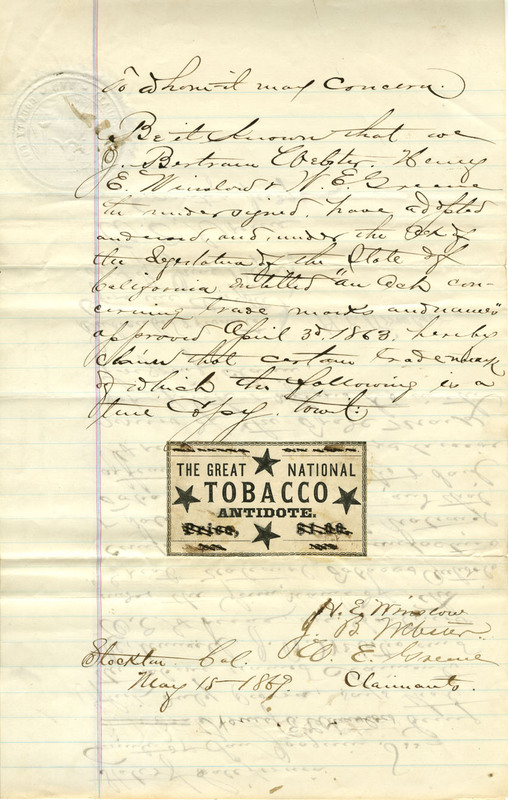 To whom it may concern.
Be it known that we
J. Bertram Webster, Henry
E. Winslow & W. E. Greene
the undersigned, have adopted
and used, and, under the Act of
the Legislature of the State of
California entitled "an Act con-
cerning trade marks and names"
approved April 3d. 1863, hereby
claim that certain trade mark
of which the following is a
true Copy, towit:
THE GREAT NATIONAL
TOBACCO
ANTIDOTE.
Price, $1.00.
H. E. Winslow
J. B. Webster.
W. E. Greene
Stockton Cal.
May 15 1869. Claimants.